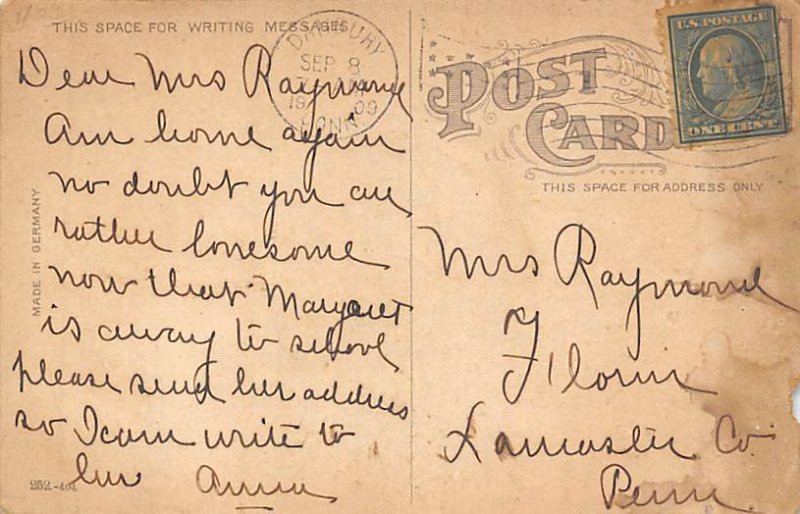 THIS SPACE FOR WRITING MESSAGES
Dear Mrs Raymond
Am home again
no doubt you are
rather lonesome
now that Margaret
is away to school
please send her address
so I can write to
her Anna
MADE IN GERMANY
252-404
DANBURY
SEP 8
1909
CONN
POST
CARD
U.S. POSTAGE
ONE CENT
THIS SPACE FOR ADDRESS ONLY
Mrs Raymond
Florin
Lancaster Co
Penn